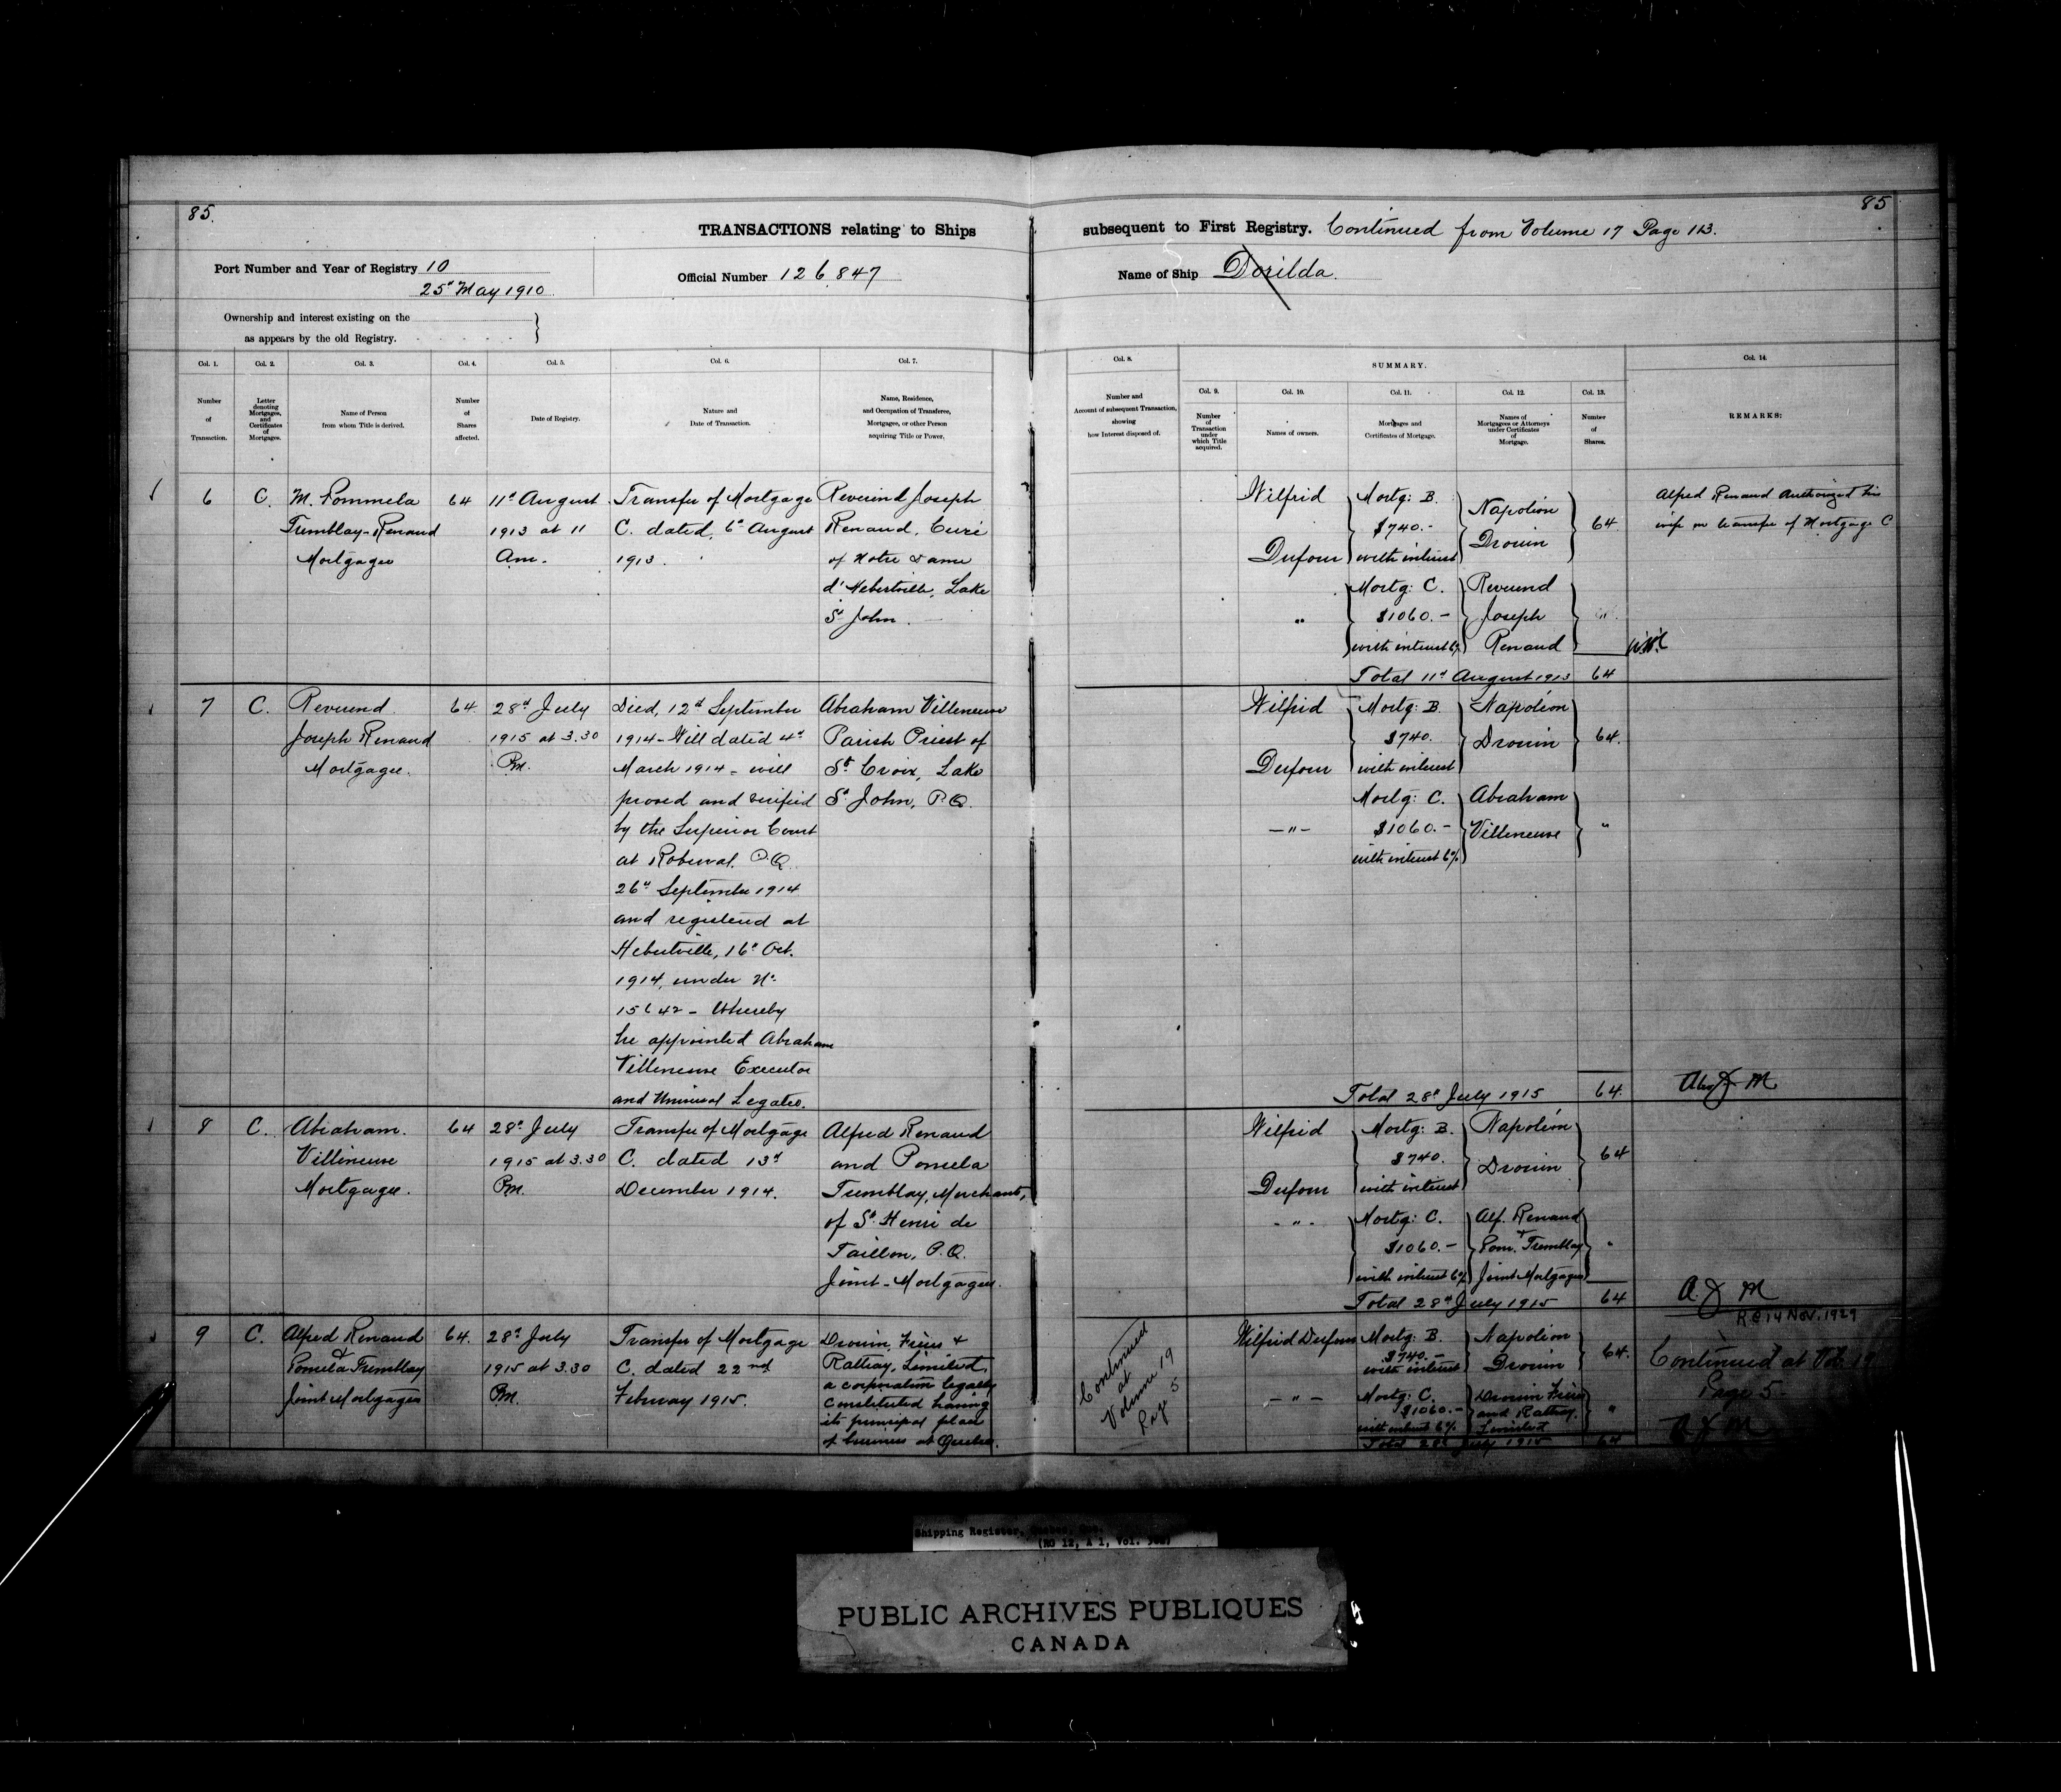 85.
85
TRANSACTIONS relating to Ships
subsequent to First Registry. Continued from Volume 17 Page 113.
Port Number and Year of Registry 10
25th May 1910
Official Number 126,847
Name of Ship Dorilda.
Ownership and interest existing on the
as appears by the old Registry.
Col. 1.
Number
of
Transaction.
Col. 2.
Letter
denoting
Mortgages,
and
Certificates
of
Mortgages.
Col. 3.
Name of Person
from whom Title is derived.
Col. 4.
Number
of
Shares
affected.
Col. 5.
Date of Registry.
Col. 6.
Nature and
Date of Transaction.
Col. 7.
Name, Residence,
and Occupation of Transferee,
Mortgagee, or other Person
acquiring Title or Power.
Col. 8.
Number and
Account of subsequent Transaction,
showing
how Interest disposed of.
SUMMARY.
Col. 9.
Number
of
Transaction
under
which Title
acquired.
Col. 10.
Names of owners.
Col. 11.
Mortgages and
Certificates of Mortgage.
Col. 12.
Names of
Mortgagees or Attorneys
under Certificates
of
Mortgage.
Col. 13.
Number
of
Shares.
Col. 14.
REMARKS:
6
C.
M. Pommela
Tremblay-Renaud
Mortgagee
64
11th August
1913 at 11
Am.
Transfer of Mortgage
C. dated, 6th August
1913.
Reverend Joseph
Renaud, Curé
of Notre Dame
d'Hebertville, Lake
St John.
Wilfrid
Dufour
Mortg: B.
$740.-
with interest
Napoléon
Drouin
64
"
Mortg: C.
$1060.-
with interest 6%
Reverend
Joseph
Renaud
"
Total 11th August 1913 64
Alfred Renaud Authorized his
wife on transfer of Mortgage C
7
C.
Reverend
Joseph Renaud
Mortgagee.
64
28th July
1915 at 3.30
Pm.
Died, 12th September
1914 - Will dated 4th
March 1914 - will
proved and verified
by the Superior Court
at Roberval. P.Q.
26th September 1914
and registered at
Hebertville, 16th Oct.
1914, under No
15642 - Whereby
he appointed Abraham
Villeneuve Executor
and Universal Legatee.
Abraham Villeneuve
Parish Priest of
St. Croix, Lake
St John, P.Q.
Wilfrid
Dufour
Mortg: B.
$740.
with interest
Napoléon
Drouin
64.
- " -
Mortg: C.
$1060.-
with interest 6%
Abraham
Villeneuve
"
Total 28th July 1915 64.
8
C.
Abraham.
Villeneuve
Mortgagee.
64
28th July
1915 at 3.30
Pm.
Transfer of Mortgage
C. dated 13th
December 1914.
Alfred Renaud
and Pomela
Tremblay, Merchants,
of St. Henri de
Taillon, P.Q.
Joint-Mortgagees.
Wilfrid
Dufour
Mortg: B.
$740.
with interest
Napoléon
Drouin
64
- " -
Mortg: C.
$1060.-
with interest 6%
Alf. Renaud
+
Pom. Tremblay
Joint Mortgagees
"
Total 28th July 1915 64
R.C. 14 Nov. 1929
9
C.
Alfred Renaud
&
Pomela Tremblay
Joint Mortgagees
64.
28th July
1915 at 3.30
PM.
Transfer of Mortgage
C. dated 22nd
February 1915.
Drouin, Frères &
Rattray, Limited,
a corporation legally
constituted having
its principal place
of business at Quebec.
Continued
at
Volume 19
Page
5
Wilfrid Dufour
Mortg: B.
$740.-
with interest
Napoléon
Drouin
64.
- " -
Mortg: C.
$1060.-
with interest 6%
Drouin Frères
and Rattray,
Limited
"
Total 28th July 1915 64
Continued at Vol. 19
Page 5
Shipping Register,
PUBLIC ARCHIVES PUBLIQUES
CANADA